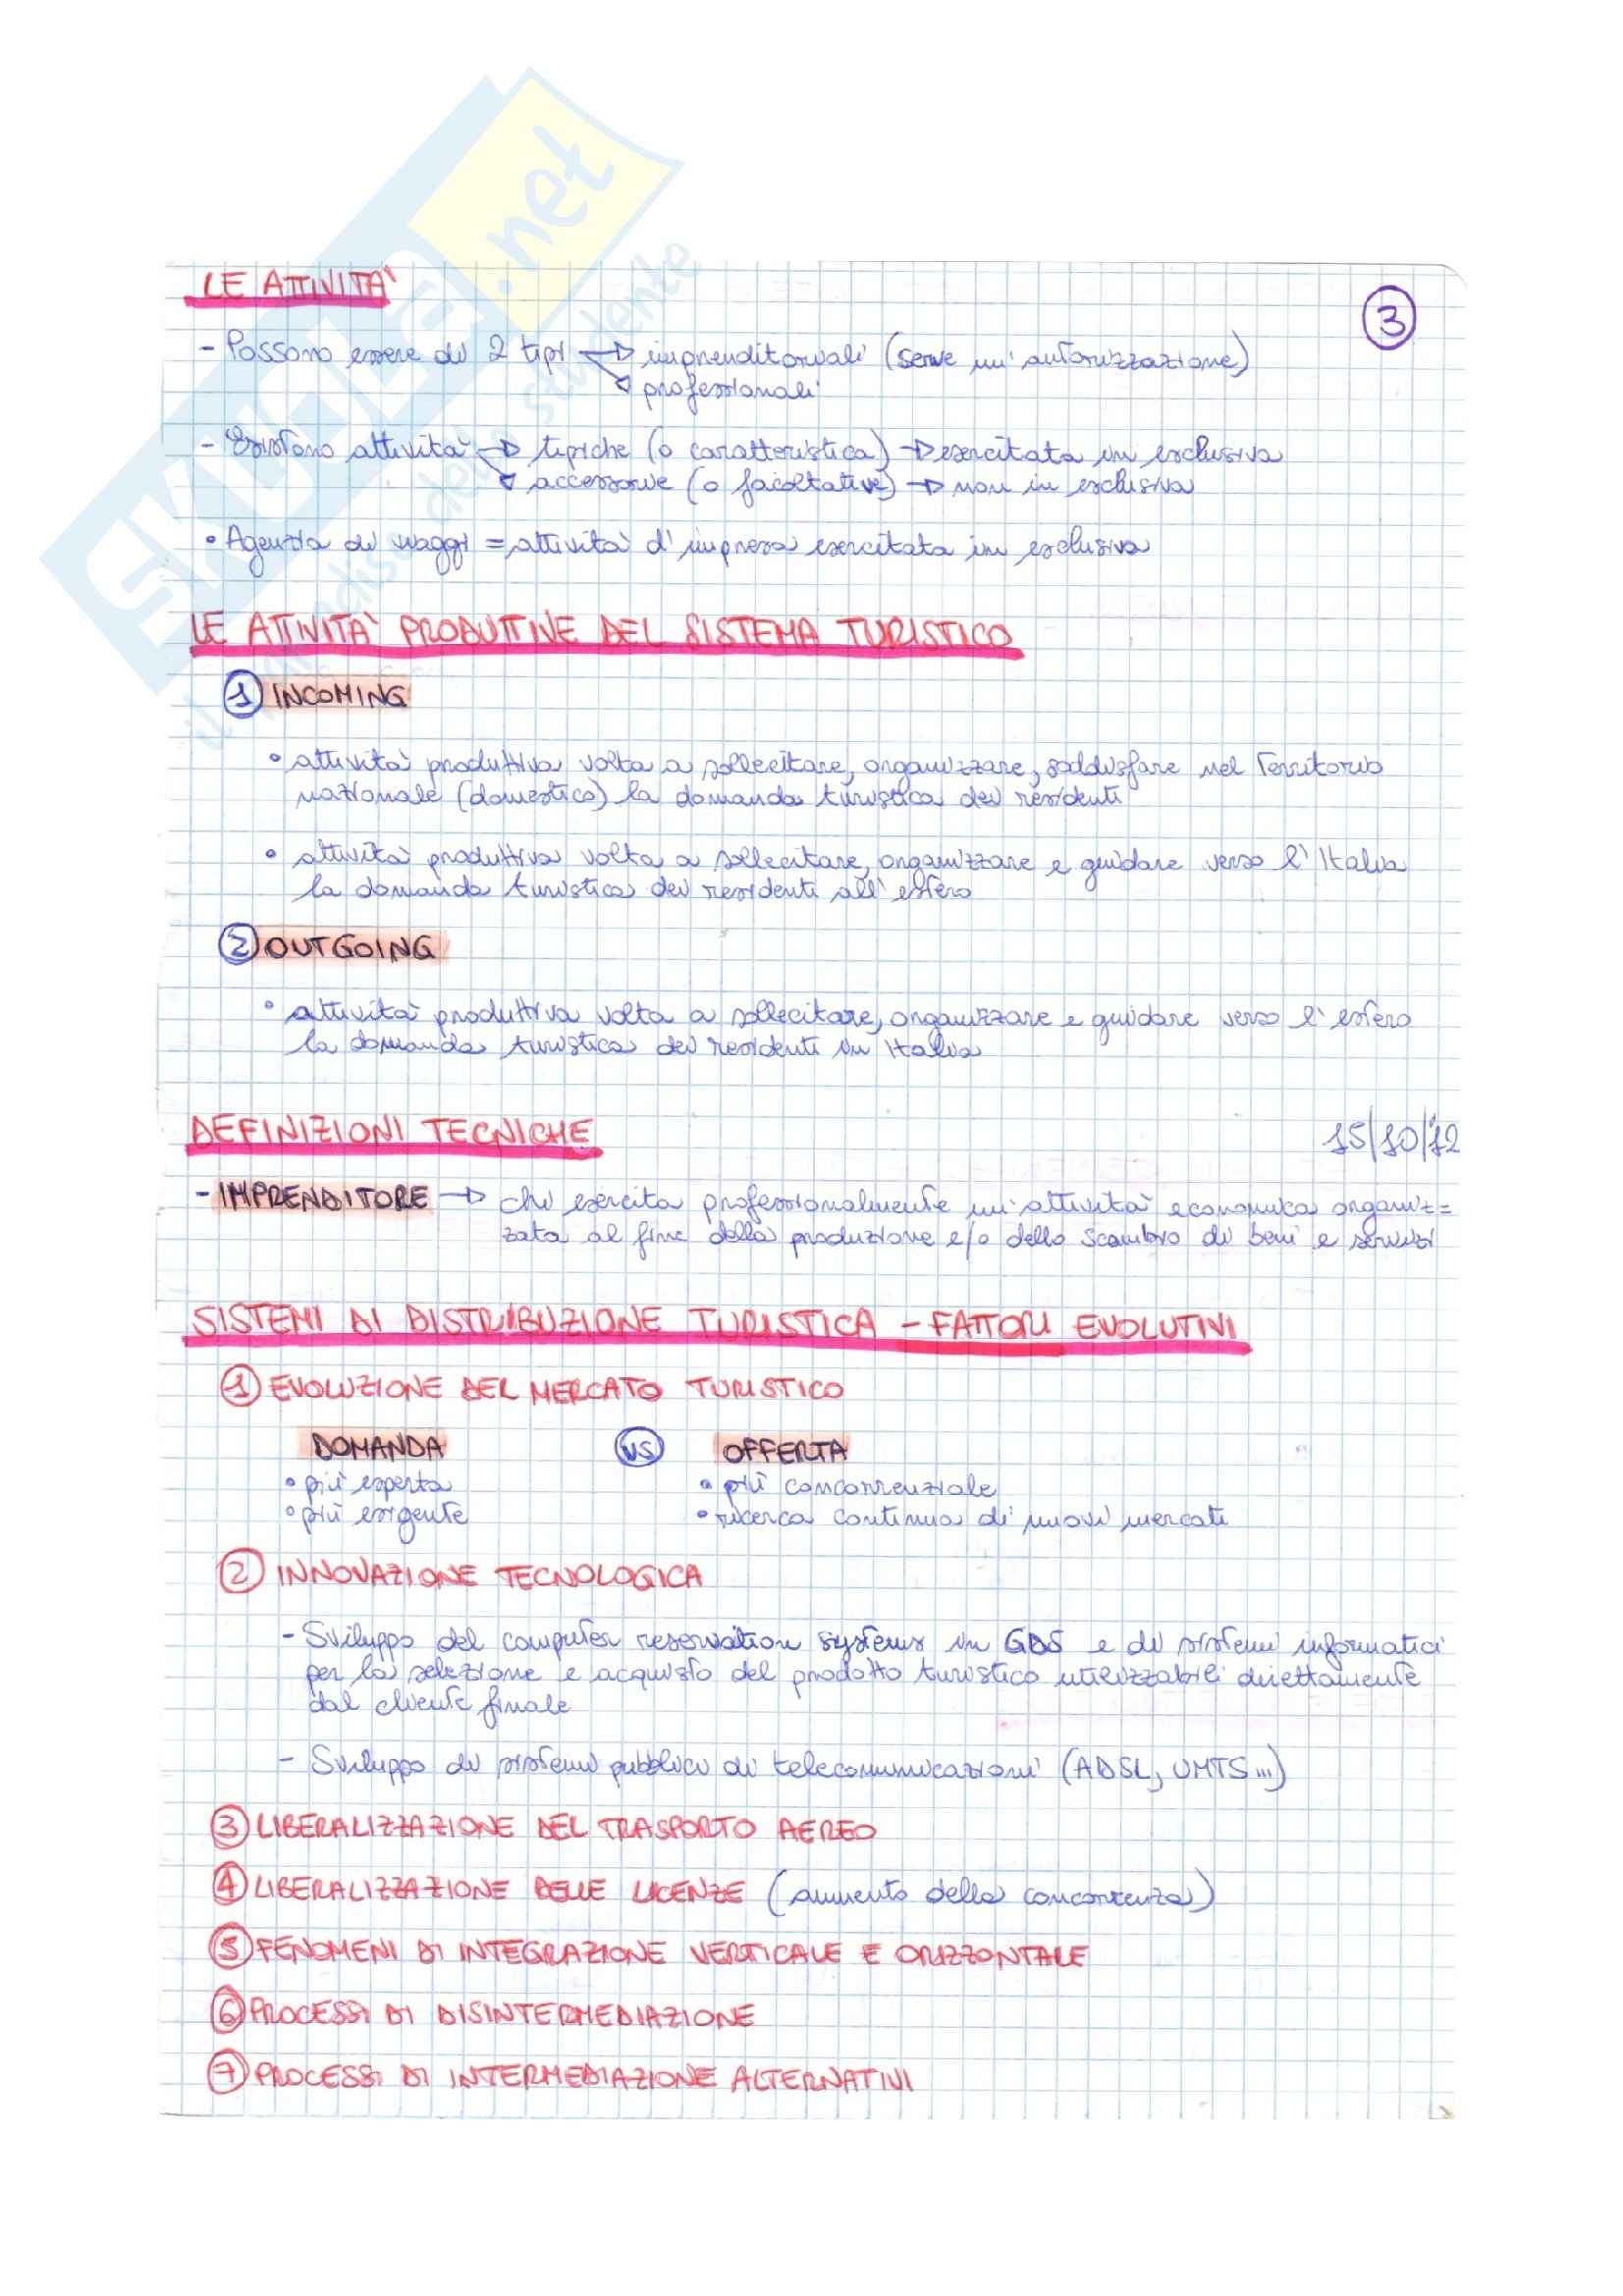 SKUOLA.net
il paradiso dello studente
LE ATTIVITA'
3
- Possono essere di 2 tipi → imprenditoriali (serve un'autorizzazione)
→ professionali
- Esistono attività → tipiche (o caratteristica) → esercitata in esclusiva
→ accessorie (o facoltative) → non in esclusiva
• Agenzia di viaggi = attività d'impresa esercitata in esclusiva
LE ATTIVITA' PRODUTTIVE DEL SISTEMA TURISTICO
1 INCOMING
• attività produttiva volta a sollecitare, organizzare, soddisfare nel territorio
nazionale (domestico) la domanda turistica dei residenti
• attività produttiva volta a sollecitare, organizzare e guidare verso l'Italia
la domanda turistica dei residenti all'estero
2 OUTGOING
• attività produttiva volta a sollecitare, organizzare e guidare verso l'estero
la domanda turistica dei residenti in Italia
DEFINIZIONI TECNICHE
15/10/12
- IMPRENDITORE → chi esercita professionalmente un'attività economica organiz=
zata al fine della produzione e/o dello scambio di beni e servizi
SISTEMI DI DISTRIBUZIONE TURISTICA - FATTORI EVOLUTIVI
1 EVOLUZIONE DEL MERCATO TURISTICO
DOMANDA VS OFFERTA
• più esperta • più concorrenziale
• più esigente • ricerca continua di nuovi mercati
2 INNOVAZIONE TECNOLOGICA
- Sviluppo del computer reservation systems in GDS e di sistemi informatici
per la selezione e acquisto del prodotto turistico utilizzabili direttamente
dal cliente finale
- Sviluppo di sistemi pubblici di telecomunicazioni (ADSL, UMTS...)
3 LIBERALIZZAZIONE DEL TRASPORTO AEREO
4 LIBERALIZZAZIONE DELLE LICENZE (aumento della concorrenza)
5 FENOMENI DI INTEGRAZIONE VERTICALE E ORIZZONTALE
6 PROCESSI DI DISINTERMEDIAZIONE
7 PROCESSI DI INTERMEDIAZIONE ALTERNATIVI